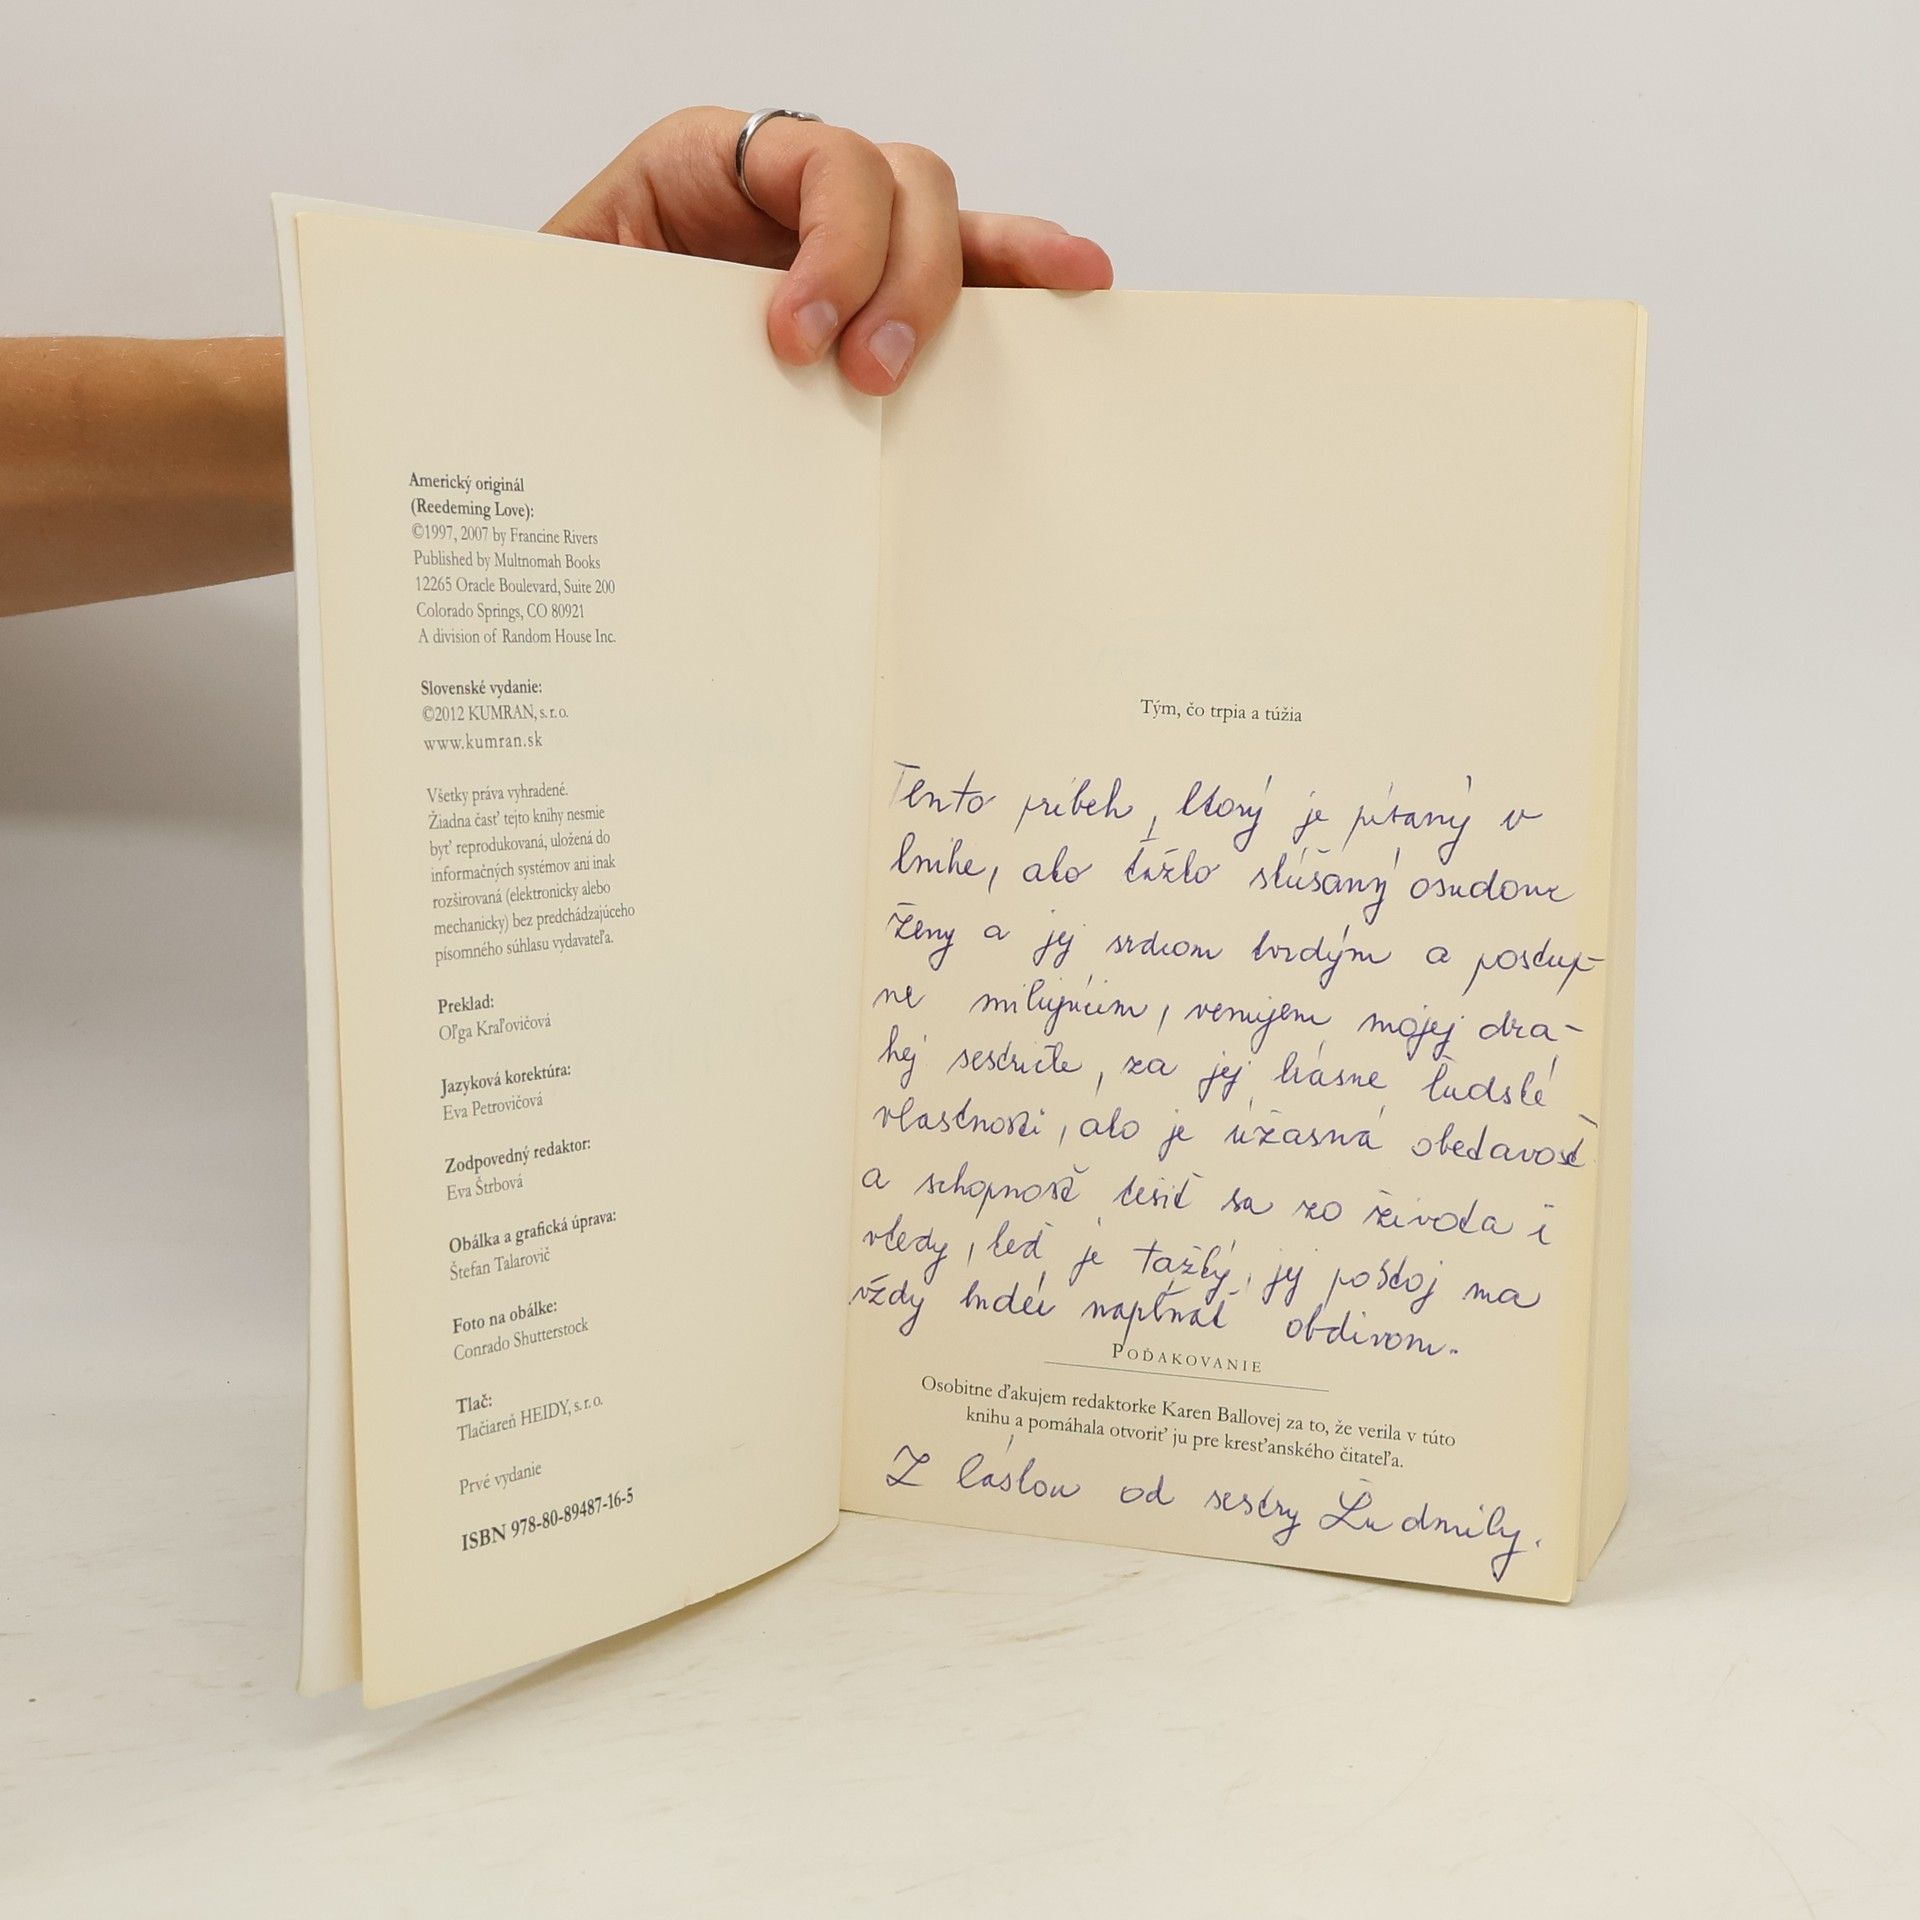 Americký originál
(Reedeming Love):
©1997, 2007 by Francine Rivers
Published by Multnomah Books
12265 Oracle Boulevard, Suite 200
Colorado Springs, CO 80921
A division of Random House Inc.
Slovenské vydanie:
©2012 KUMRAN, s. r. o.
www.kumran.sk
Všetky práva vyhradené.
Žiadna časť tejto knihy nesmie
byť reprodukovaná, uložená do
informačných systémov ani inak
rozširovaná (elektronicky alebo
mechanicky) bez predchádzajúceho
písomného súhlasu vydavateľa.
Preklad:
Oľga Kraľovičová
Jazyková korektúra:
Eva Petrovičová
Zodpovedný redaktor:
Eva Štrbová
Obálka a grafická úprava:
Štefan Talarovič
Foto na obálke:
Conrado Shutterstock
Tlač:
Tlačiareň HEIDY, s. r. o.
Prvé vydanie
ISBN 978-80-89487-16-5
Tým, čo trpia a túžia
Tento príbeh, ktorý je písaný v
knihe, ako ťažko skúšaný osudom
ženy a jej srdcom tvrdým a postup-
ne milujúcim, venujem mojej dra-
hej sestričke, za jej krásne ľudské
vlastnosti, ako je úžasná obetavosť
a schopnosť tešiť sa zo života i
vtedy, keď je ťažký, jej postoj ma
vždy bude napĺňať obdivom.
POĎAKOVANIE
Osobitne ďakujem redaktorke Karen Ballovej za to, že verila v túto
knihu a pomáhala otvoriť ju pre kresťanského čitateľa.
Z láskou od sestry Ľudmily.